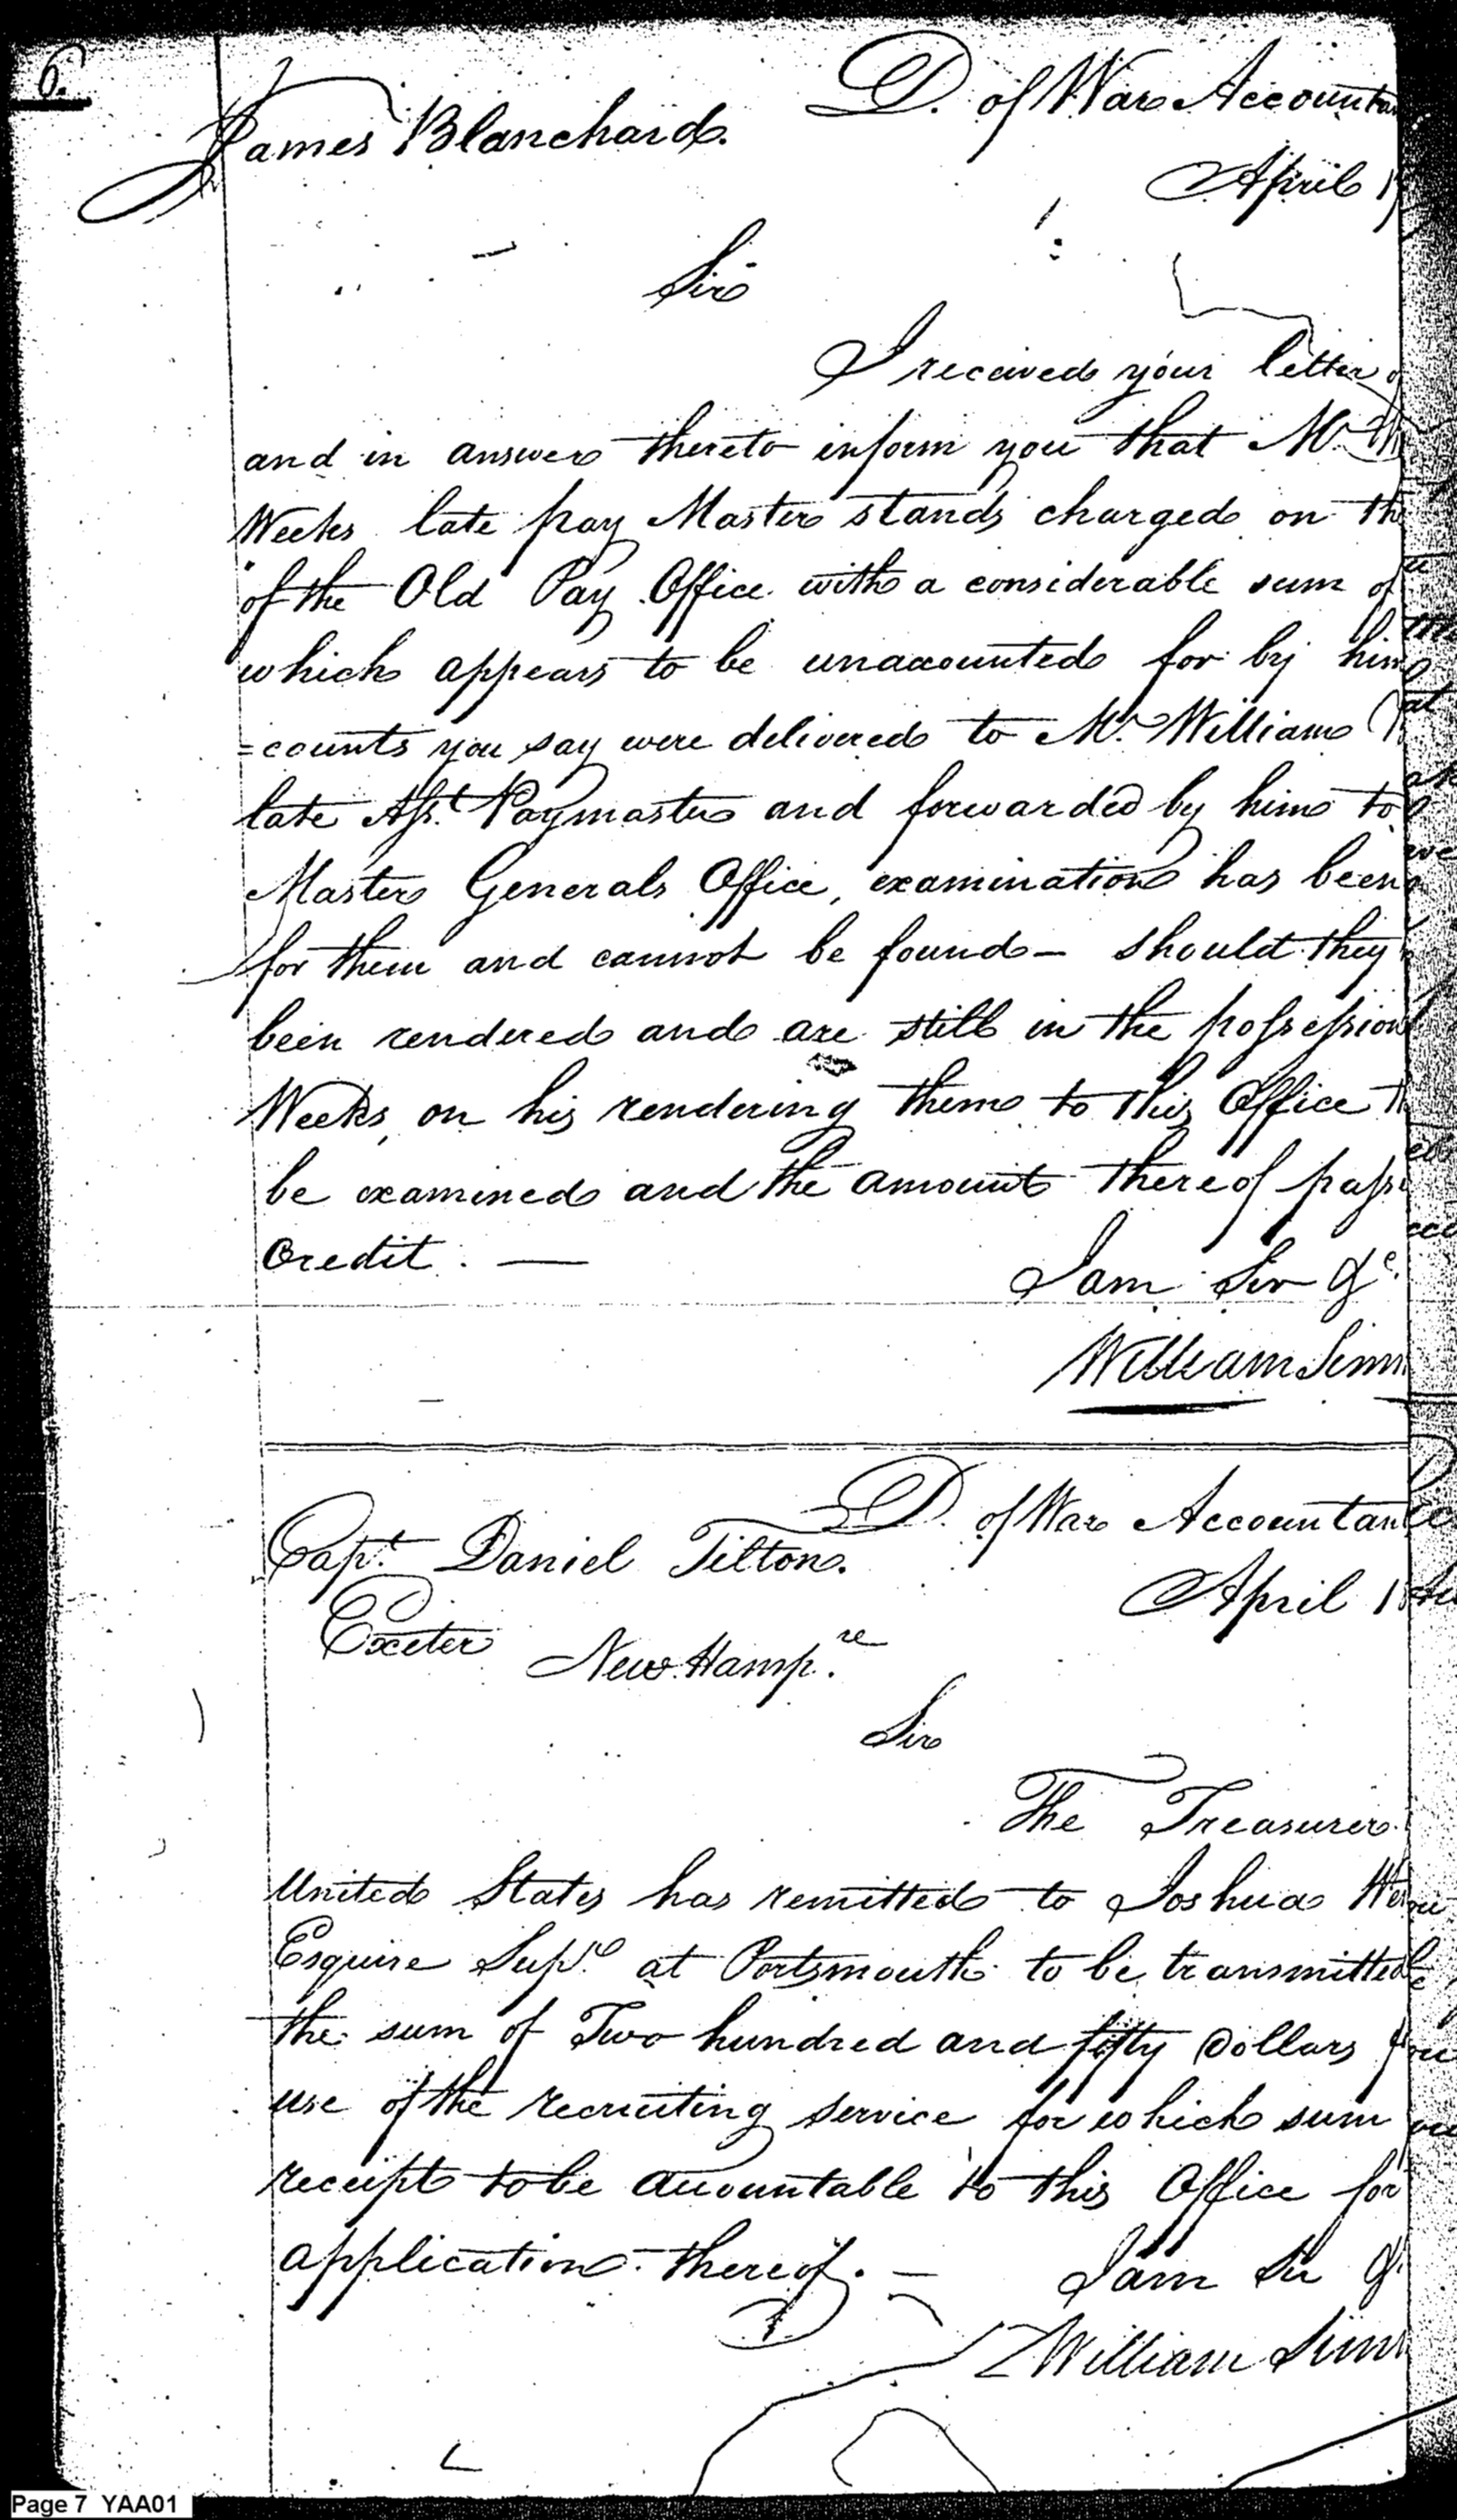 6.
D. of War Accountan
James Blanchard.
April 1
Sir
I received your letter
and in answer thereto inform you that Mr.
Weeks late pay Master stands charged on th
of the Old Pay Office with a considerable sum of
which appears to be unaccounted for by him
=counts you say were delivered to Mr. William
late Asst. Paymaster and forwarded by him to
Master Generals Office, examination has been
for them and cannot be found – should they
been rendered and are still in the possession
Weeks, on his rendering them to this Office
be examined and the amount thereof pass
Credit. —
I am Sir &c.
William Sim
D. of War Accountan
Capt. Daniel Tilton.
April 1
Exeter
New Hampre.
Sir
The Treasurer
United States has remitted to Joshua
Esquire Supr. at Portsmouth to be transmitted
the sum of Two hundred and fifty Dollars
use of the recruiting service for which sum
receipt to be accountable to this Office for
application thereof. —
I am Sir &
William Sim
Page 7 YAA01